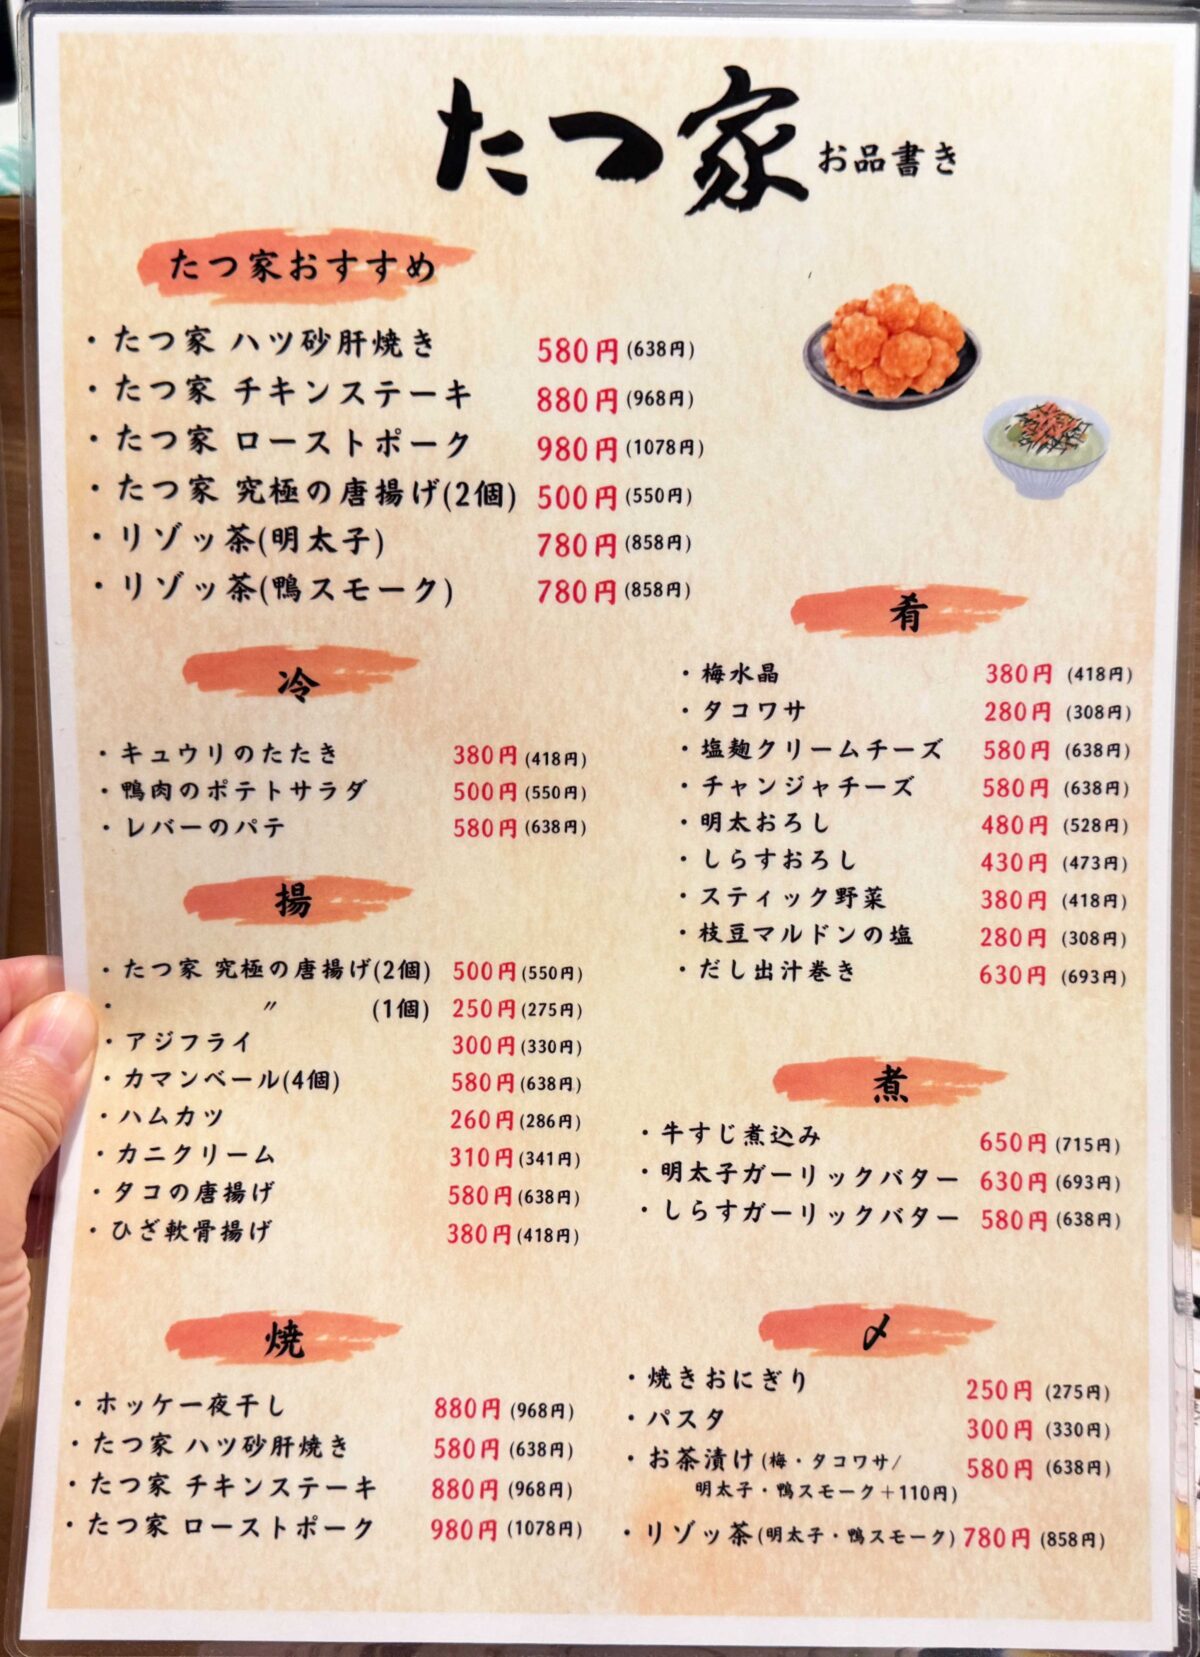 たつ家 お品書き
たつ家おすすめ
・たつ家 ハツ砂肝焼き 580円(638円)
・たつ家 チキンステーキ 880円(968円)
・たつ家 ローストポーク 980円(1078円)
・たつ家 究極の唐揚げ(2個) 500円(550円)
・リゾッ茶(明太子) 780円(858円)
・リゾッ茶(鴨スモーク) 780円(858円)
冷
・キュウリのたたき 380円(418円)
・鴨肉のポテトサラダ 500円(550円)
・レバーのパテ 580円(638円)
揚
・たつ家 究極の唐揚げ(2個) 500円(550円)
・〃 (1個) 250円(275円)
・アジフライ 300円(330円)
・カマンベール(4個) 580円(638円)
・ハムカツ 260円(286円)
・カニクリーム 310円(341円)
・タコの唐揚げ 580円(638円)
・ひざ軟骨揚げ 380円(418円)
焼
・ホッケ一夜干し 880円(968円)
・たつ家 ハツ砂肝焼き 580円(638円)
・たつ家 チキンステーキ 880円(968円)
・たつ家 ローストポーク 980円(1078円)
肴
・梅水晶 380円(418円)
・タコワサ 280円(308円)
・塩麹クリームチーズ 580円(638円)
・チャンジャチーズ 580円(638円)
・明太おろし 480円(528円)
・しらすおろし 430円(473円)
・スティック野菜 380円(418円)
・枝豆マルドンの塩 280円(308円)
・だし出汁巻き 630円(693円)
煮
・牛すじ煮込み 650円(715円)
・明太子ガーリックバター 630円(693円)
・しらすガーリックバター 580円(638円)
〆
・焼きおにぎり 250円(275円)
・パスタ 300円(330円)
・お茶漬け(梅・タコワサ/ 580円(638円)
明太子・鴨スモーク+110円)
・リゾッ茶(明太子・鴨スモーク) 780円(858円)